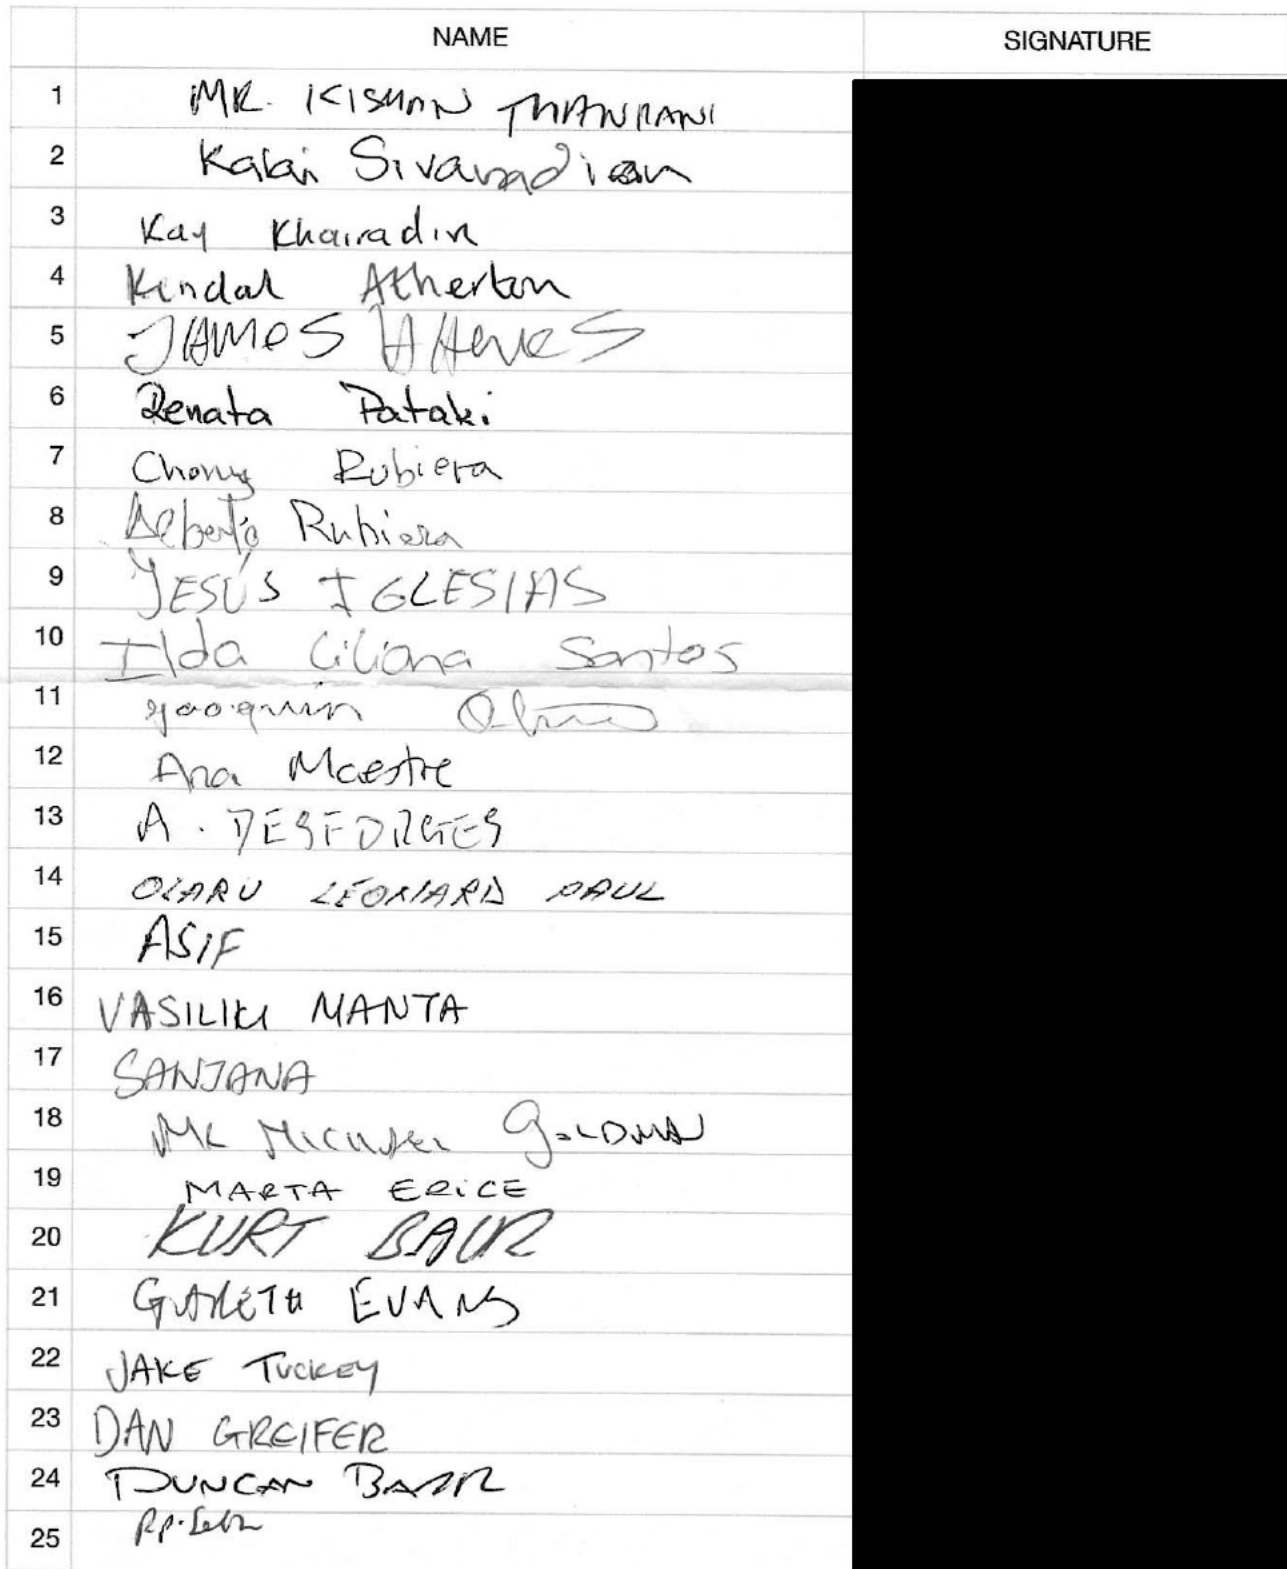 NAME SIGNATURE
1 MR. KISHAN THANRANI
2 Kalai Sivanadian
3 Kay Khairadin
4 Kindal Atherton
5 JAMES HAWES
6 Renata Pataki
7 Chony Rubiera
8 Alberto Rubiera
9 JESÚS IGLESIAS
10 Ilda Liliana Santos
11 Joaquin
12 Ana Maestre
13 A. DESFORGES
14 OLARU LEONARD PAUL
15 ASIF
16 VASILIKI MANTA
17 SANJANA
18 MR MICHAEL GOLDMAN
19 MARTA ERICE
20 KURT BAUR
21 GARETH EVANS
22 JAKE TUCKEY
23 DAN GREIFER
24 DUNCAN BARR
25